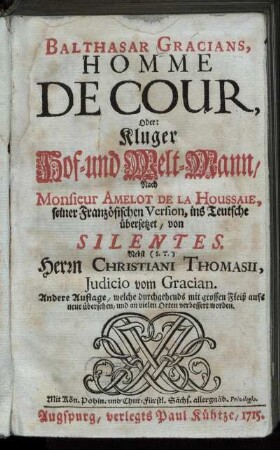 BALTHASAR GRACIANS,
HOMME
DE COUR,
Oder:
Kluger
Hof- und Welt-Mann/
Nach
Monsieur AMELOT DE LA HOUSSAIE,
seiner Französischen Version, ins Teutsche
übersetzet, von
SILENTES.
Nebst (S. T.)
Herrn CHRISTIANI THOMASII,
Judicio vom Gracian.
Andere Auflage, welche durchgehends mit grossen Fleiß aufs
neue übersehen, und an vielen Orten verbessert worden.
Mit Kön. Pohln. und Chur-Fürstl. Sächs. allergnäd. Privilegio.
Augspurg, verlegts Paul Kühtze, 1715.